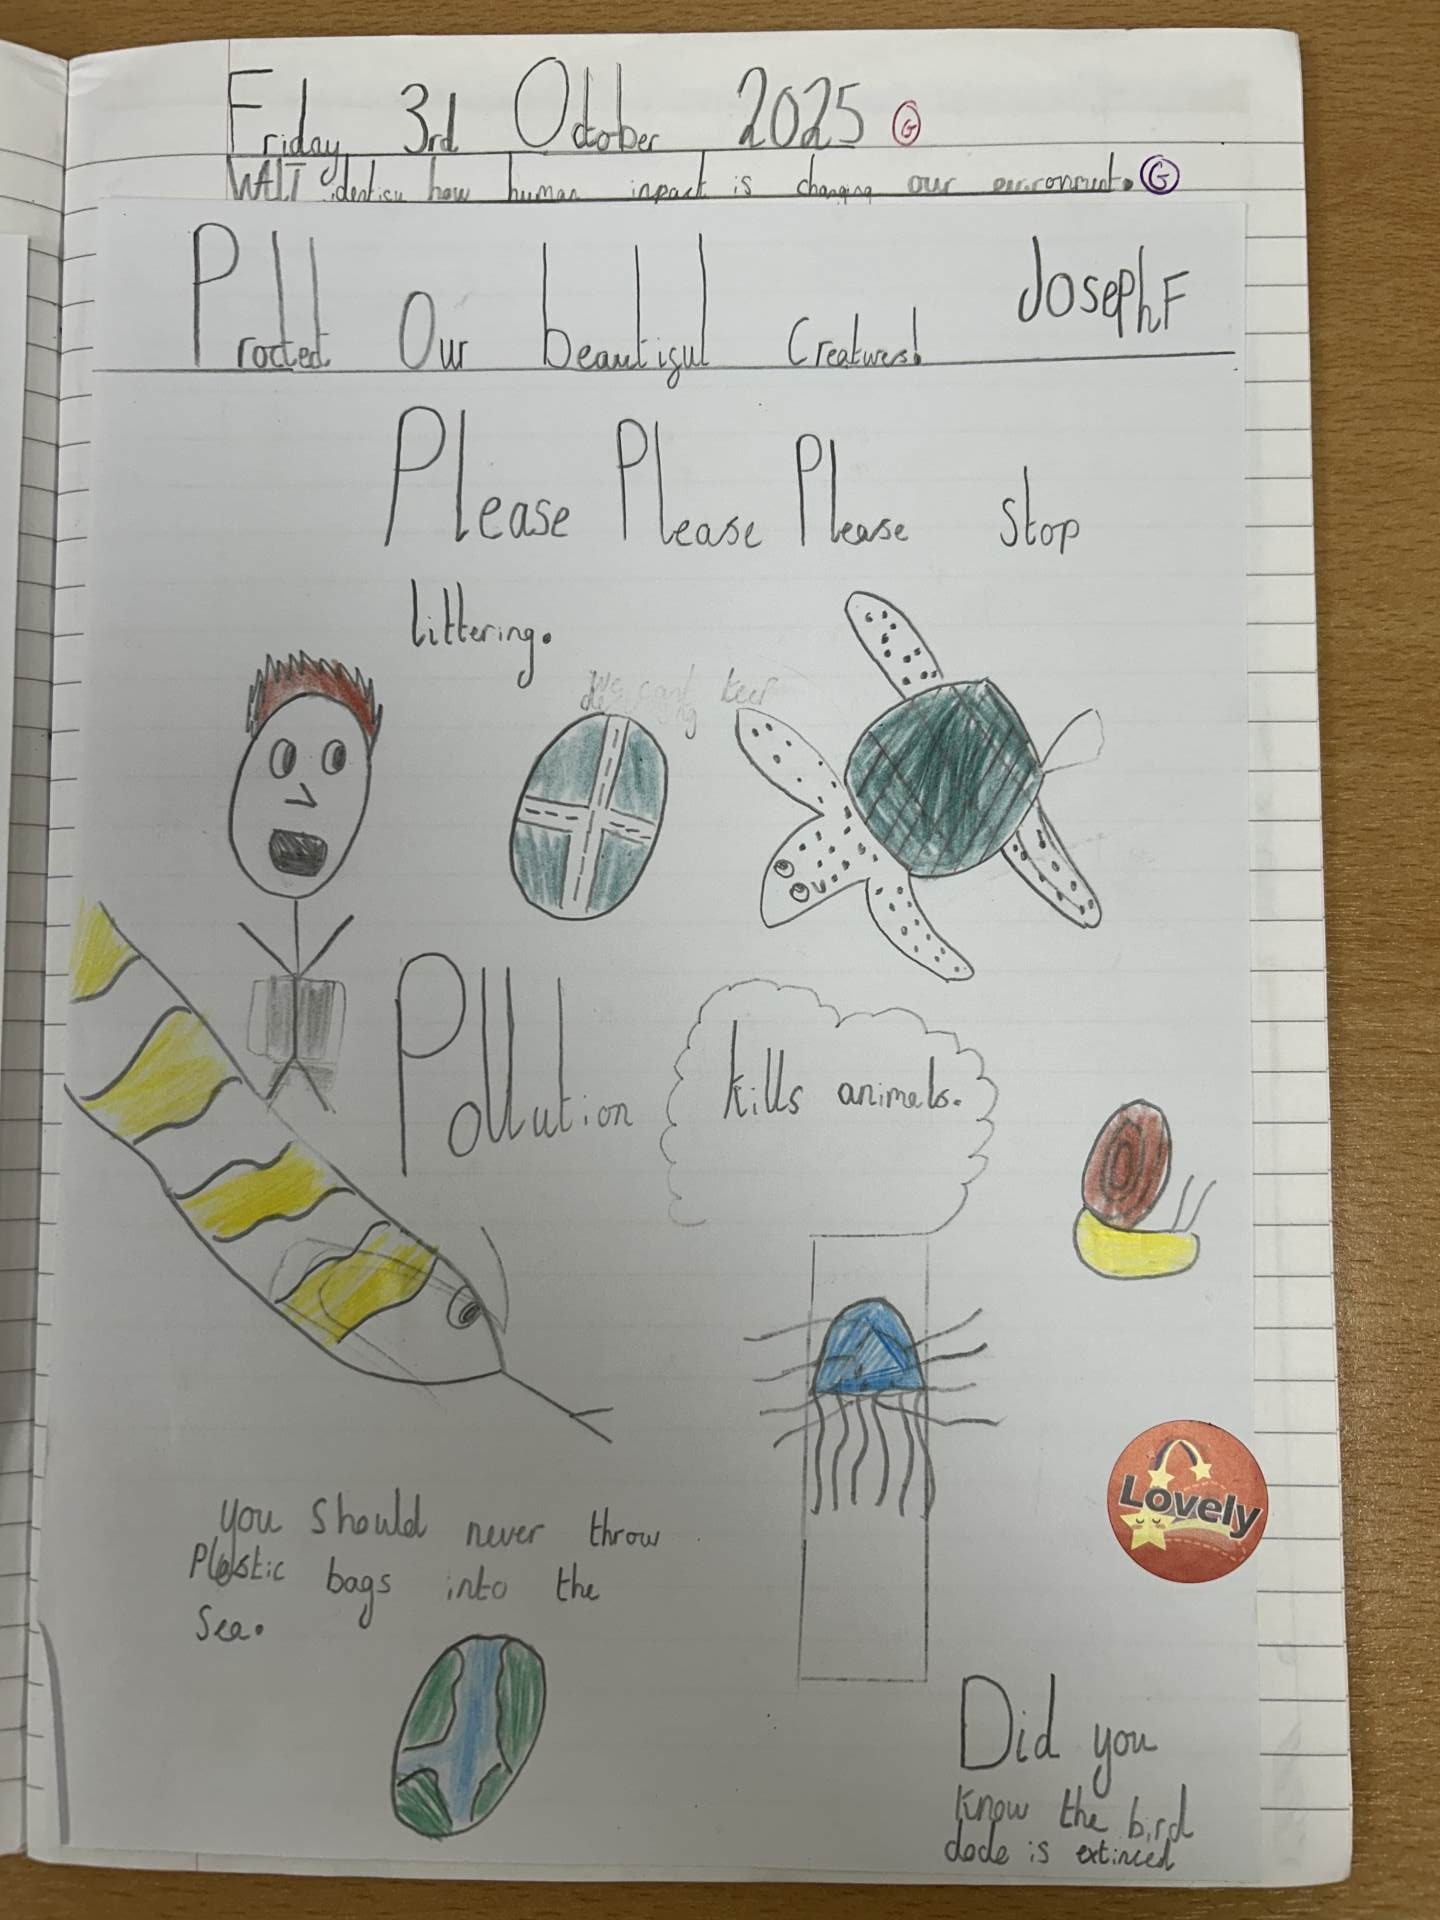 Friday 3rd October 2025 G
WALT identisy how human inpact is changing our environment. G
Protect Our beautisul Creatures!
Joseph F
Please Please Please stop
littering.
We can't keep
Pollution kills animals.
you should never throw
Plastic bags into the
Sea.
Lovely
Did you
know the bird
dodo is extinced